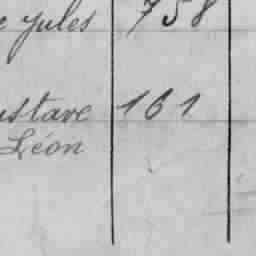 Jules 758
ustave 161
Léon